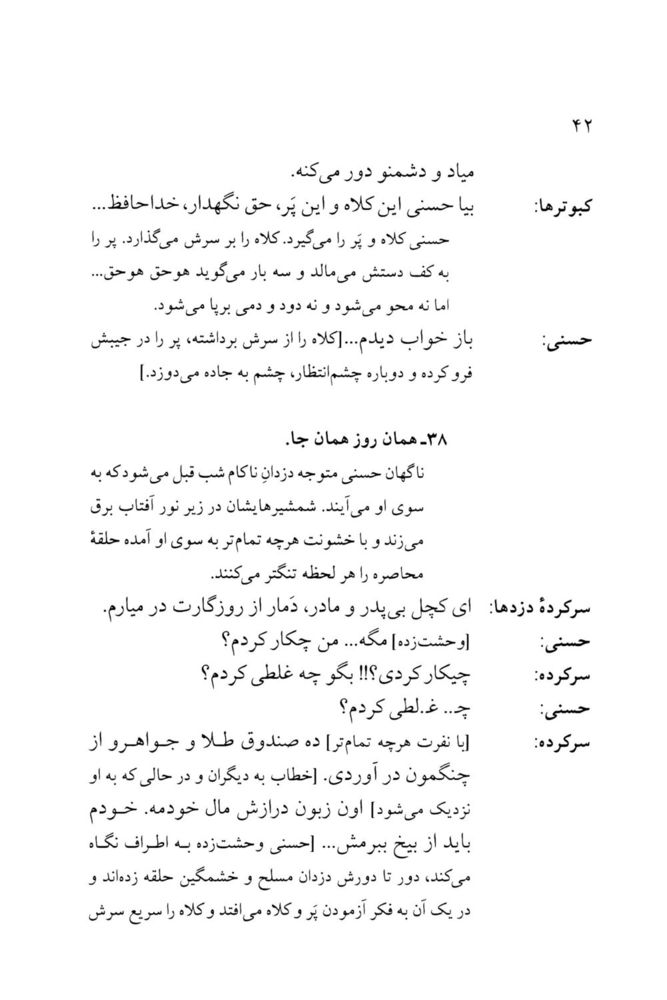 ۴۲
میاد و دشمنو دور می‌کنه.
کبوترها: بیا حسنی این کلاه و این پَر، حق نگهدار، خداحافظ...
حسنی کلاه و پَر را می‌گیرد. کلاه را بر سرش می‌گذارد. پر را
به کف دستش می‌مالد و سه بار می‌گوید هوحق هوحق...
اما نه محو می‌شود و نه دود و دمی برپا می‌شود.
حسنی: باز خواب دیدم...[کلاه را از سرش برداشته، پر را در جیبش
فرو کرده و دوباره چشم‌انتظار، چشم به جاده می‌دوزد.]
۳۸ـ همان روز همان جا.
ناگهان حسنی متوجه دزدانِ ناکام شب قبل می‌شود که به
سوی او می‌آیند. شمشیرهایشان در زیر نور آفتاب برق
می‌زند و با خشونت هرچه تمام‌تر به سوی او آمده حلقهٔ
محاصره را هر لحظه تنگتر می‌کنند.
سرکردهٔ دزدها: ای کچل بی‌پدر و مادر، دَمار از روزگارت در میارم.
حسنی: [وحشت‌زده] مگه... من چکار کردم؟
سرکرده: چیکار کردی؟!! بگو چه غلطی کردم؟
حسنی: چـ.. غـ.لطی کردم؟
سرکرده: [با نفرت هرچه تمام‌تر] ده صندوق طـلا و جـواهـرو از
چنگمون در آوردی. [خطاب به دیگران و در حالی که به او
نزدیک می‌شود] اون زبون درازش مال خودمه. خـودم
باید از بیخ ببرمش... [حسنی وحشت‌زده بـه اطـراف نگـاه
می‌کند، دور تا دورش دزدان مسلح و خشمگین حلقه زده‌اند و
در یک آن به فکر آزمودن پَر و کلاه می‌افتد و کلاه را سریع سرش